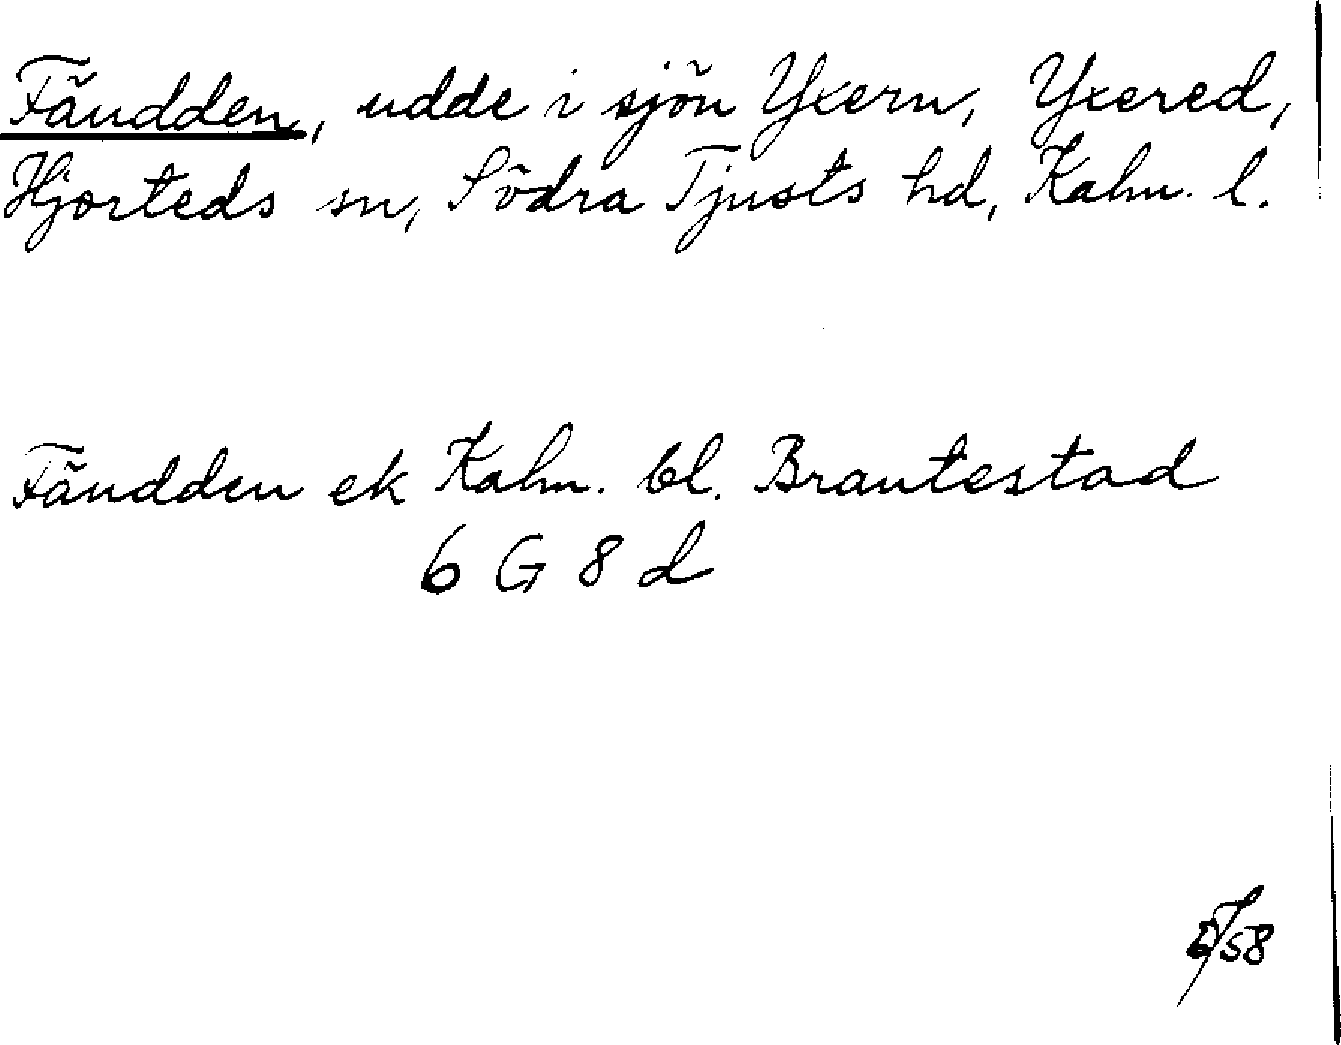 Fäudden, udde i sjön Yxern, Yxered,
Hjorteds sn, Södra Tjusts hd, Kalm. l.
Fäudden ek Kalm. bl. Brantestad
6 G 8 d